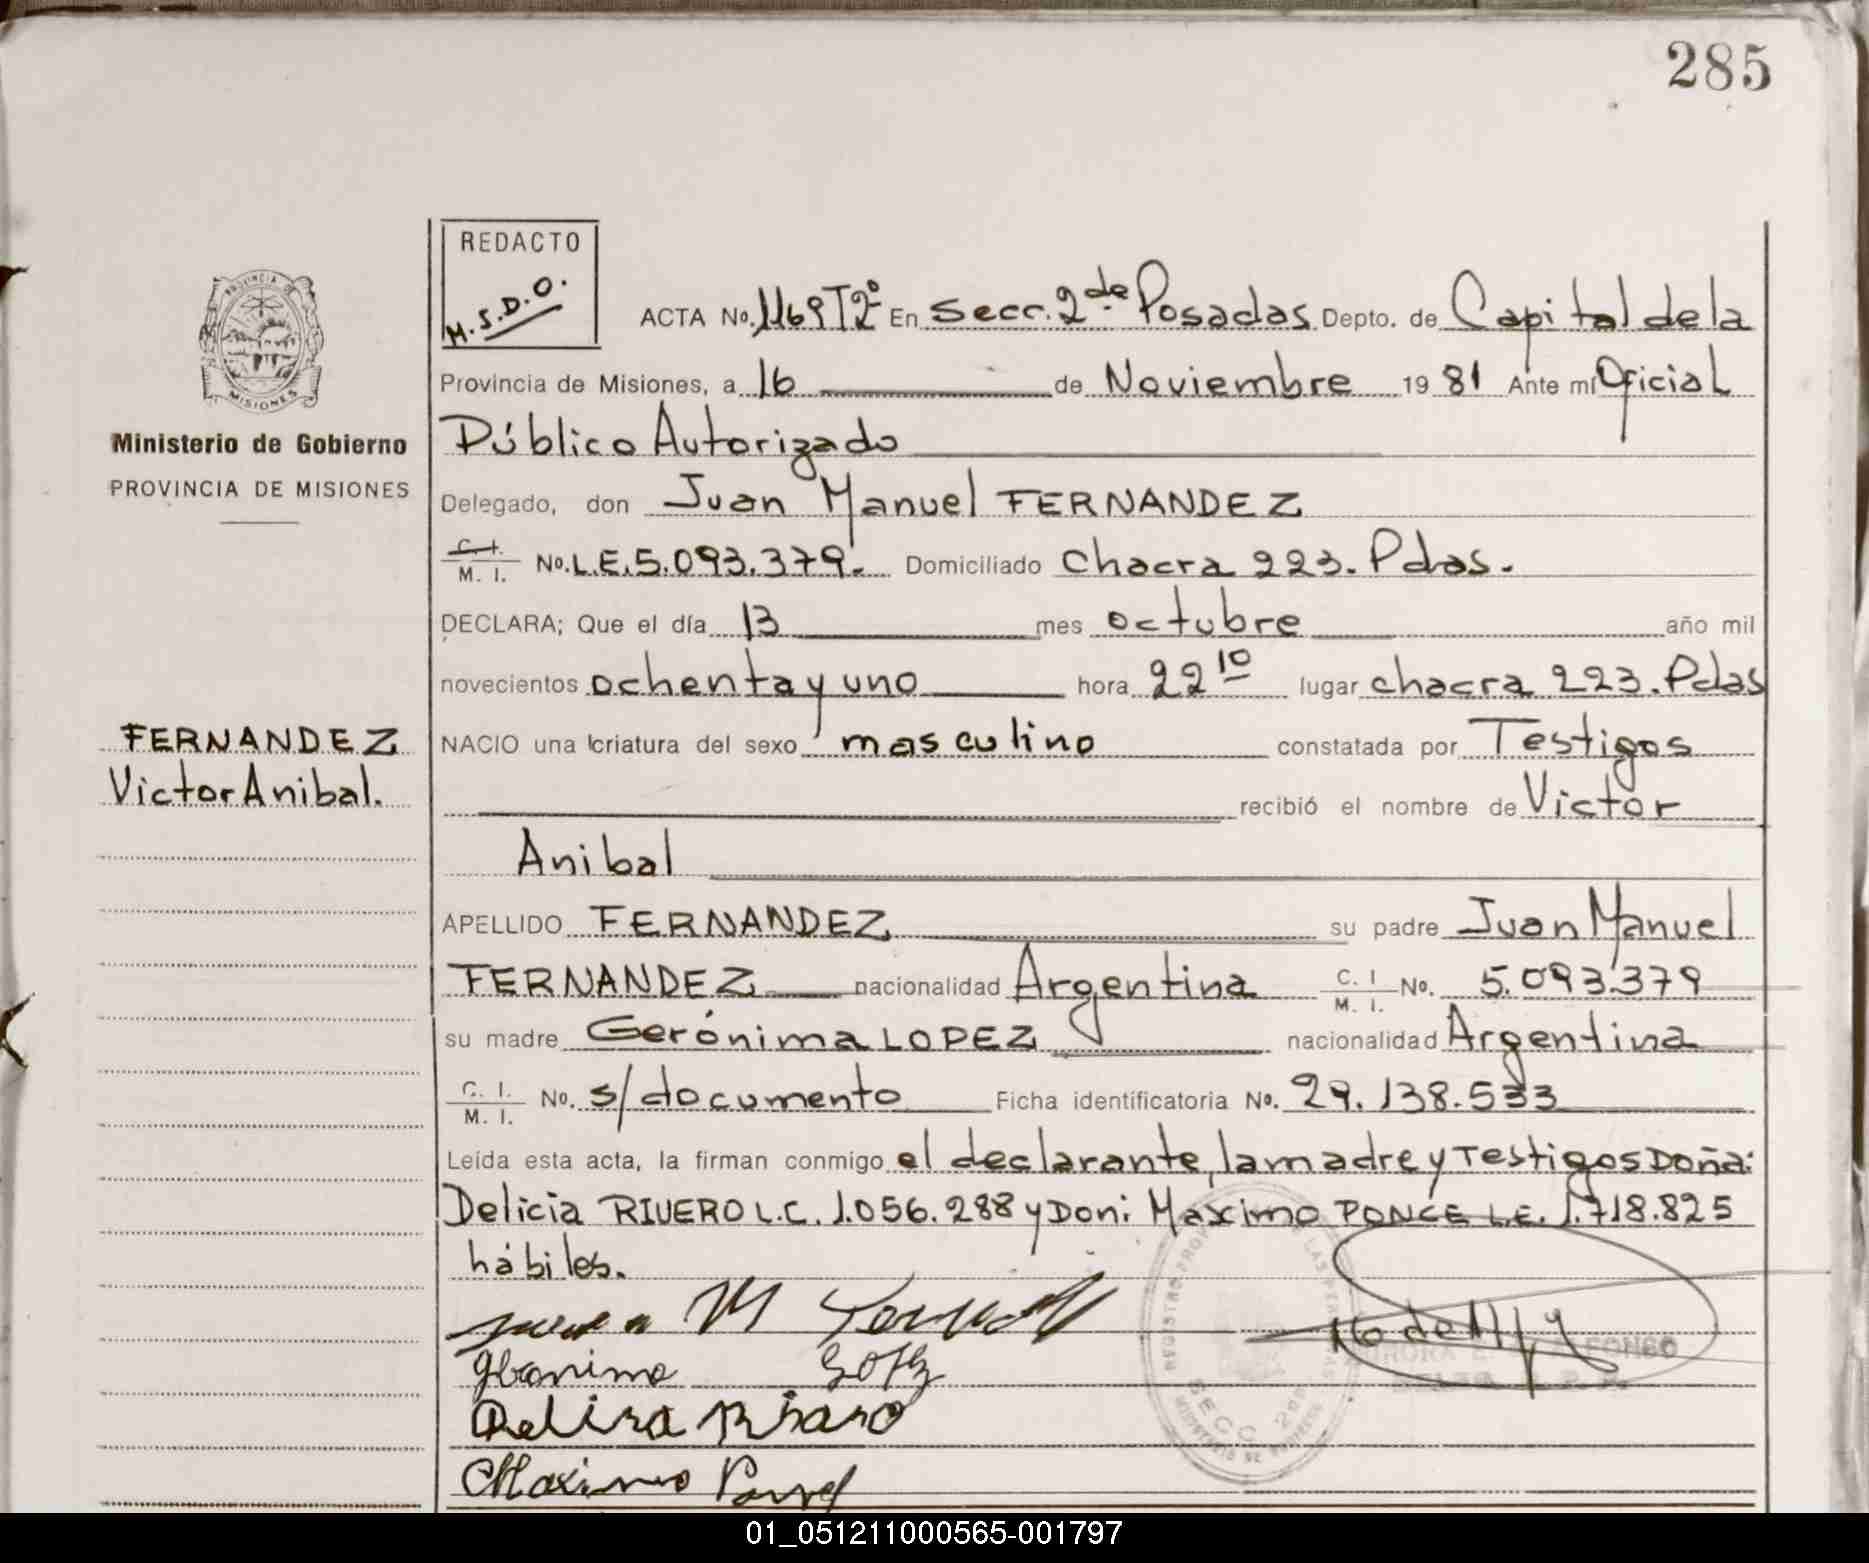 285
REDACTO
M.S.D.O.
PROVINCIA DE
MISIONES
Ministerio de Gobierno
PROVINCIA DE MISIONES
FERNANDEZ
Victor Anibal.
ACTA No. 1169 T2º En Secc. 2da Posadas Depto. de Capital de la
Provincia de Misiones, a 16 de Noviembre 1981 Ante mí Oficial
Público Autorizado
Delegado, don Juan Manuel FERNANDEZ
C. I. M. I. No. L.E. 5.093.379. Domiciliado Chacra 223. Pdas.
DECLARA; Que el día 13 mes octubre año mil
novecientos ochenta y uno hora 22 10 lugar chacra 223. Pdas
NACIO una criatura del sexo masculino constatada por Testigos
recibió el nombre de Victor
Anibal
APELLIDO FERNANDEZ su padre Juan Manuel
FERNANDEZ nacionalidad Argentina C. I M. I. No. 5.093.379
su madre Gerónima LOPEZ nacionalidad Argentina
C. I. M. I. No. s/documento Ficha identificatoria No. 29.138.533
Leída esta acta, la firman conmigo el declarante, la madre y Testigos Doña:
Delicia RIVERO L.C. 1.056.288 y Don: Maximo PONCE L.E. 1.718.825
hábiles.
REGISTRO LAS PERSONAS
SECC. 2da
MINISTERIO DE GOBIERNO
Maximo
01_051211000565-001797